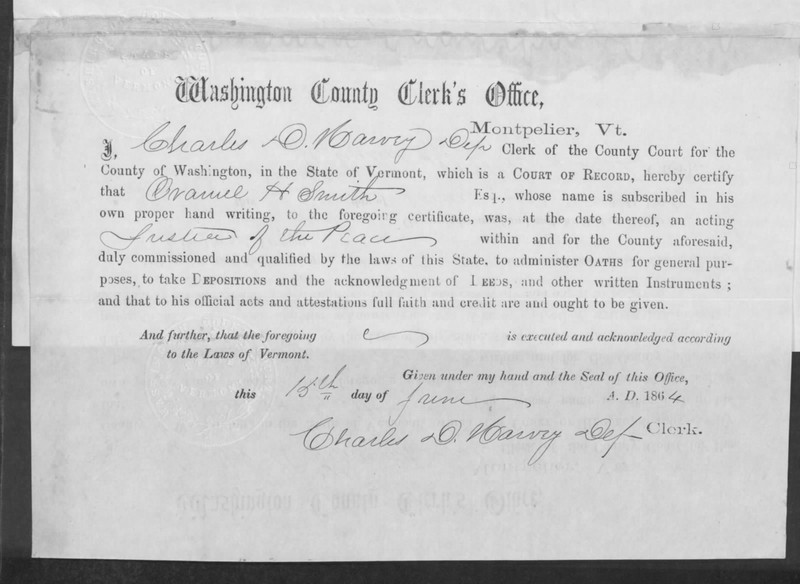 Washington County Clerk's Office,
Montpelier, Vt.
I, Charles D. Harvey Dep Clerk of the County Court for the
County of Washington, in the State of Vermont, which is a COURT OF RECORD, hereby certify
that Oramel H Smith Esq., whose name is subscribed in his
own proper hand writing, to the foregoing certificate, was, at the date thereof, an acting
Justice of the Peace within and for the County aforesaid,
duly commissioned and qualified by the laws of this State, to administer OATHS for general pur-
poses, to take DEPOSITIONS and the acknowledgment of DEEDS, and other written Instruments ;
and that to his official acts and attestations full faith and credit are and ought to be given.
And further, that the foregoing is executed and acknowledged according
to the Laws of Vermont.
Given under my hand and the Seal of this Office,
this 15th day of June A. D. 1864
Charles D. Harvey Dep Clerk.